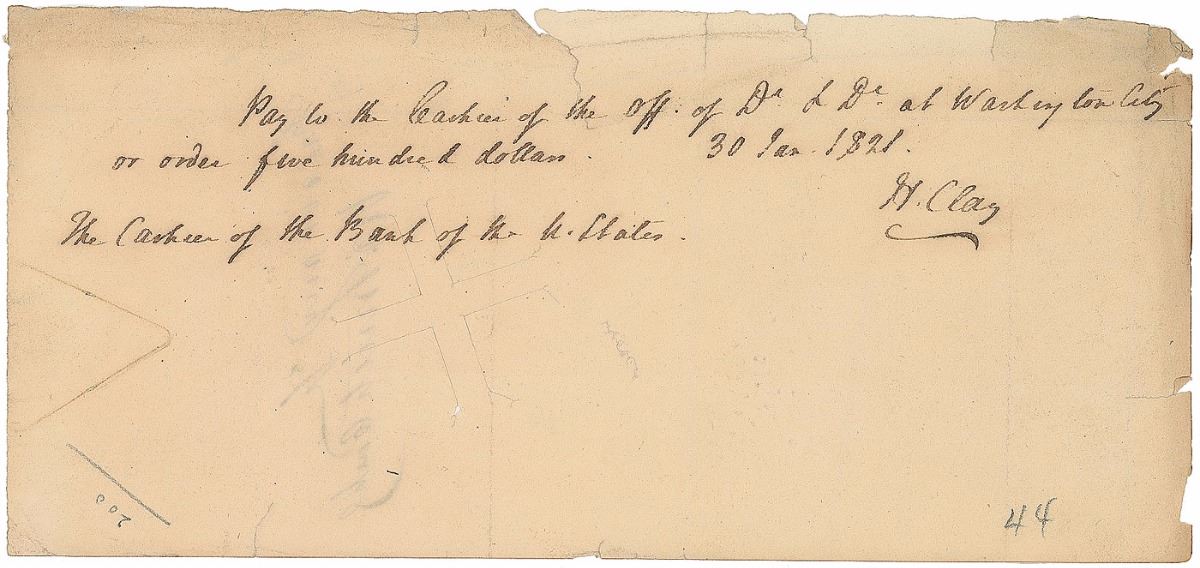 Pay to the Cashier of the Off. of Dt. & Dt. at Washington City
or order five hundred dollars. 30 Jan. 1821.
H. Clay
The Cashier of the Bank of the U. States.
200
44